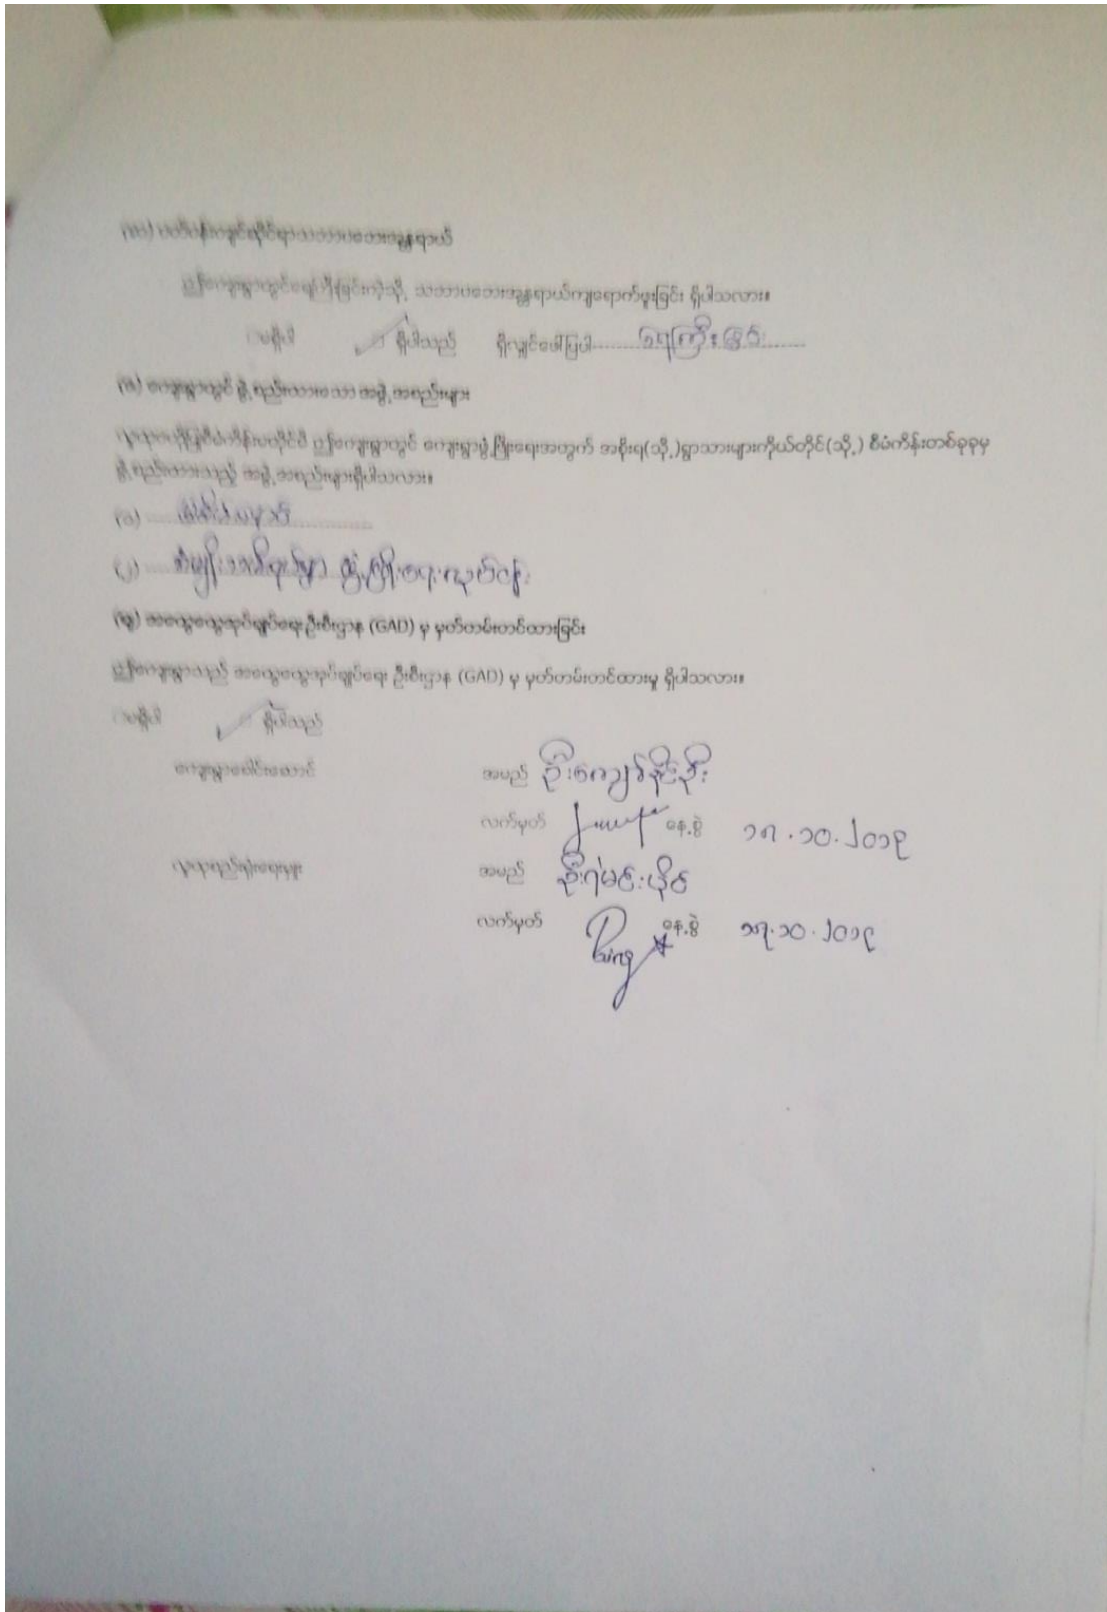 (ဃ) ပတ်ဝန်းကျင်ဆိုင်ရာသဘာဝဘေးအန္တရာယ်
ဤကျေးရွာတွင်ရေကြီးခြင်းကဲ့သို့ သဘာဝဘေးအန္တရာယ်ကျရောက်ဖူးခြင်း ရှိပါသလား။
မရှိပါ ရှိပါသည် ရှိလျှင်ဖော်ပြပါ ရေကြီးခြင်း
ကျေးရွာတွင် ဖွဲ့စည်းထားသော အဖွဲ့အစည်းများ
လူထုဗဟိုပြုစီမံကိန်းမတိုင်မီ ဤကျေးရွာတွင် ကျေးရွာဖွံ့ဖြိုးရေးအတွက် အစိုးရ(သို့)ရွာသားများကိုယ်တိုင်(သို့) စီမံကိန်းတစ်ခုခုမှ
ဖွဲ့စည်းထားသည့် အဖွဲ့အစည်းများရှိပါသလား။
(၁)
(၂) ဖွံ့ဖြိုးရေးလုပ်ငန်း
အထွေထွေအုပ်ချုပ်ရေးဦးစီးဌာန (GAD) မှ မှတ်တမ်းတင်ထားခြင်း
ဤကျေးရွာသည် အထွေထွေအုပ်ချုပ်ရေး ဦးစီးဌာန (GAD) မှ မှတ်တမ်းတင်ထားမှု ရှိပါသလား။
မရှိပါ ရှိပါသည်
ကျေးရွာခေါင်းဆောင် အမည် ဦးကျော်နိုင်ဦး
လက်မှတ် နေ့စွဲ ၁၇.၁၀.၂၀၁၉
လူထုစည်းရုံးရေးမှူး အမည် ဦးဂမ်းပိုင်
လက်မှတ် နေ့စွဲ ၁၇.၁၀.၂၀၁၉